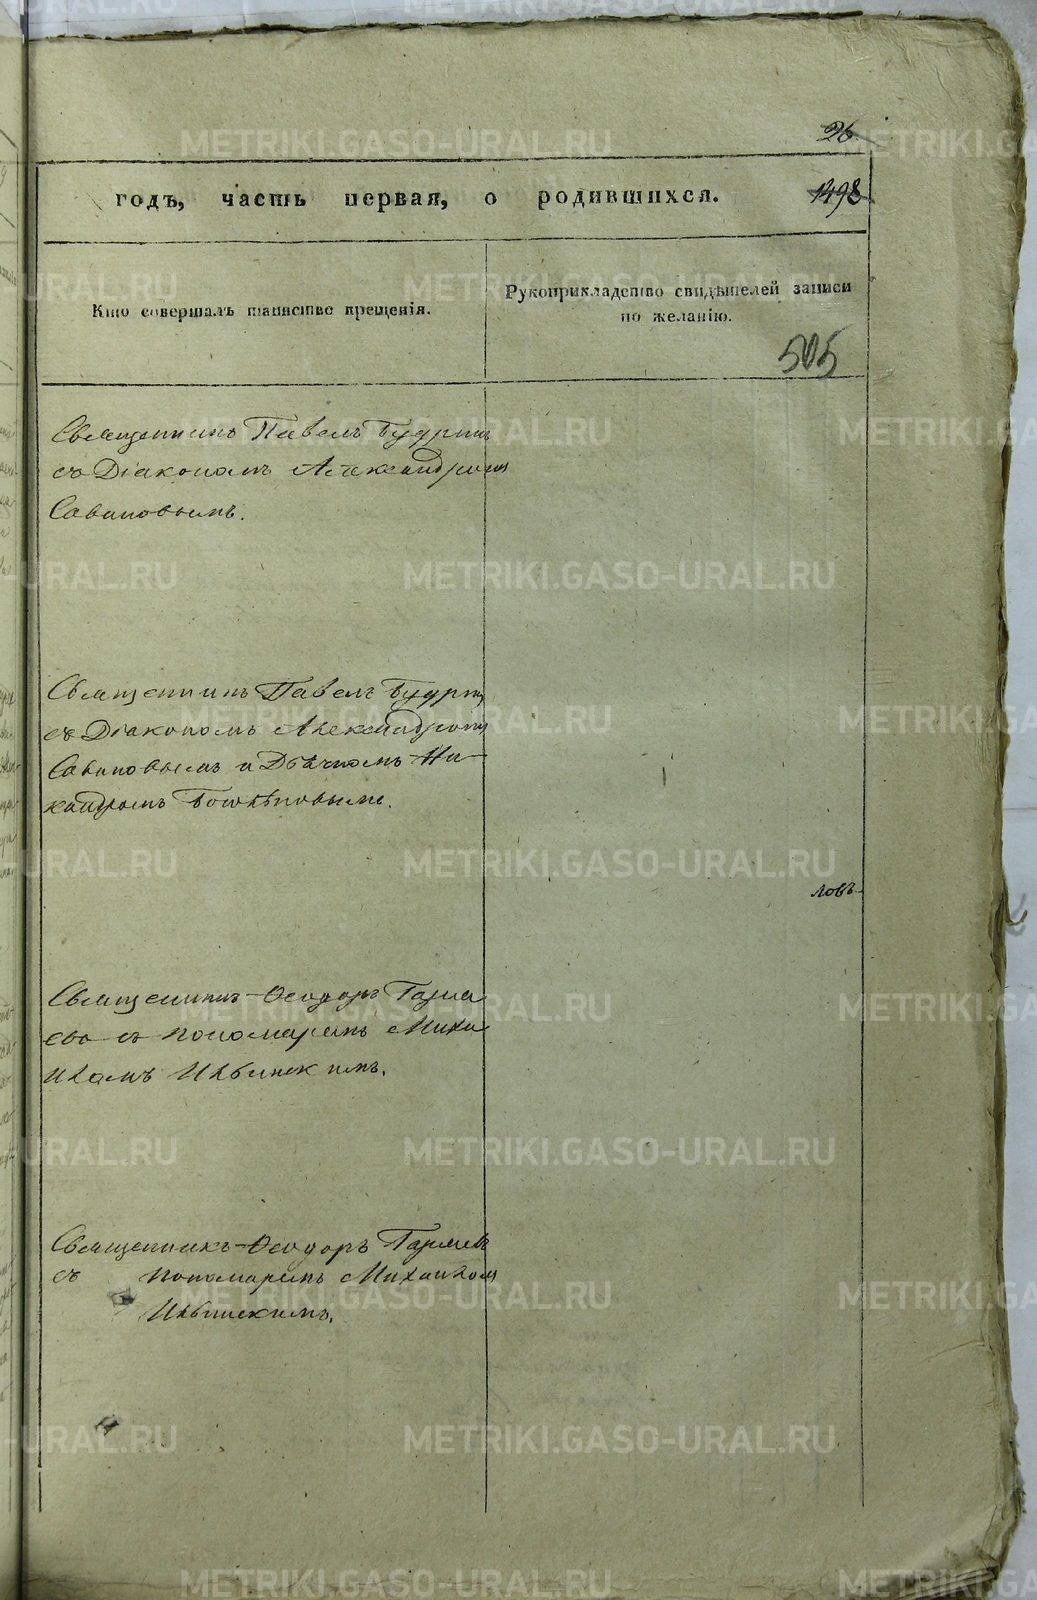 26.
годъ, часть первая, о родившихся.
1498
Кто совершалъ таинство крещенія.
Рукоприкладство свидѣтелей записи
по желанію.
505
Священникъ Павелъ Будринъ
съ Діакономъ Александромъ
Савиновымъ.
Священникъ Павелъ Будринъ
съ Діакономъ Александромъ
Савиновымъ и Дьячкомъ Ни-
кандромъ
ловъ
Священникъ Ѳеодоръ
съ пономаремъ Миха
иломъ Ильинскимъ.
Священникъ Ѳеодоръ
съ пономаремъ Михаиломъ
Ильинскимъ.
METRIKI.GASO-URAL.RU